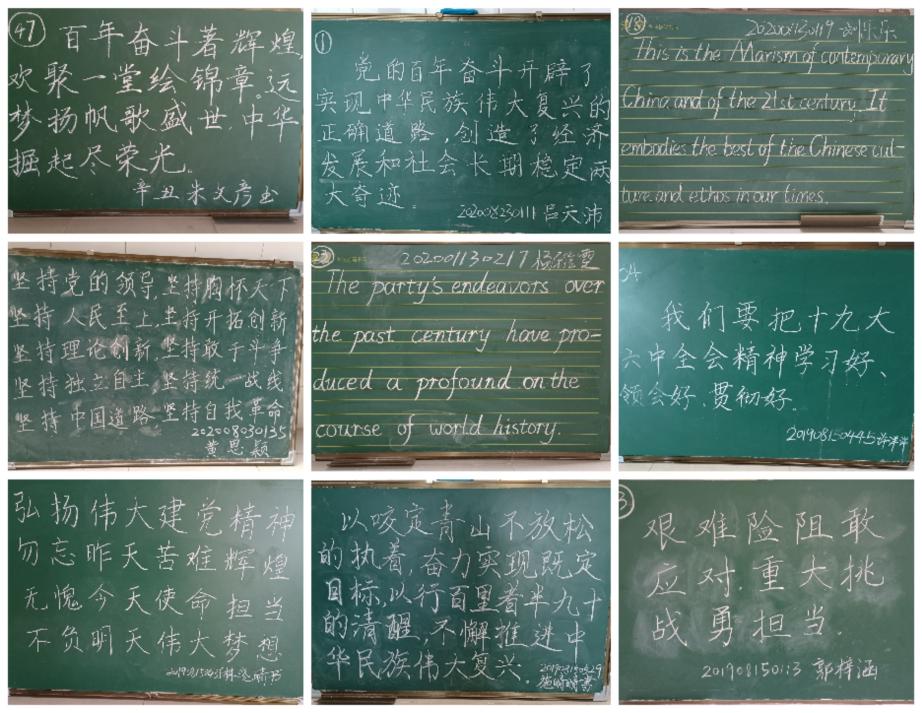 47
百年奋斗著辉煌,
欢聚一堂绘锦章。远
梦扬帆歌盛世,中华
掘起尽荣光。
辛丑朱文彦书
1
党的百年奋斗开辟了
实现中华民族伟大复兴的
正确道路,创造了经济
发展和社会长期稳定两
大奇迹。
202008230111 吕天沛
18
This is the Marism of contemporary
China and of the 21st century. It
embodies the best of the Chinese cul-
ture and ethos in our times.
坚持党的领导,坚持胸怀天下
坚持人民至上,坚持开拓创新
坚持理论创新,坚持敢于斗争
坚持独立自主,坚持统一战线
坚持中国道路,坚持自我革命
202008030135
黄思颖
22
202001130217
The party's endeavors over
the past century have pro-
duced a profound on the
course of world history.
我们要把十九大
六中全会精神学习好、
领会好、贯彻好。
201908150445
弘扬伟大建党精神
勿忘昨天苦难辉煌
无愧今天使命担当
不负明天伟大梦想
以咬定青山不放松
的执着,奋力实现既定
目标,以行百里者半九十
的清醒,不懈推进中
华民族伟大复兴.
3
艰难险阻敢
应对,重大挑
战勇担当.
201908150113 郭梓涵